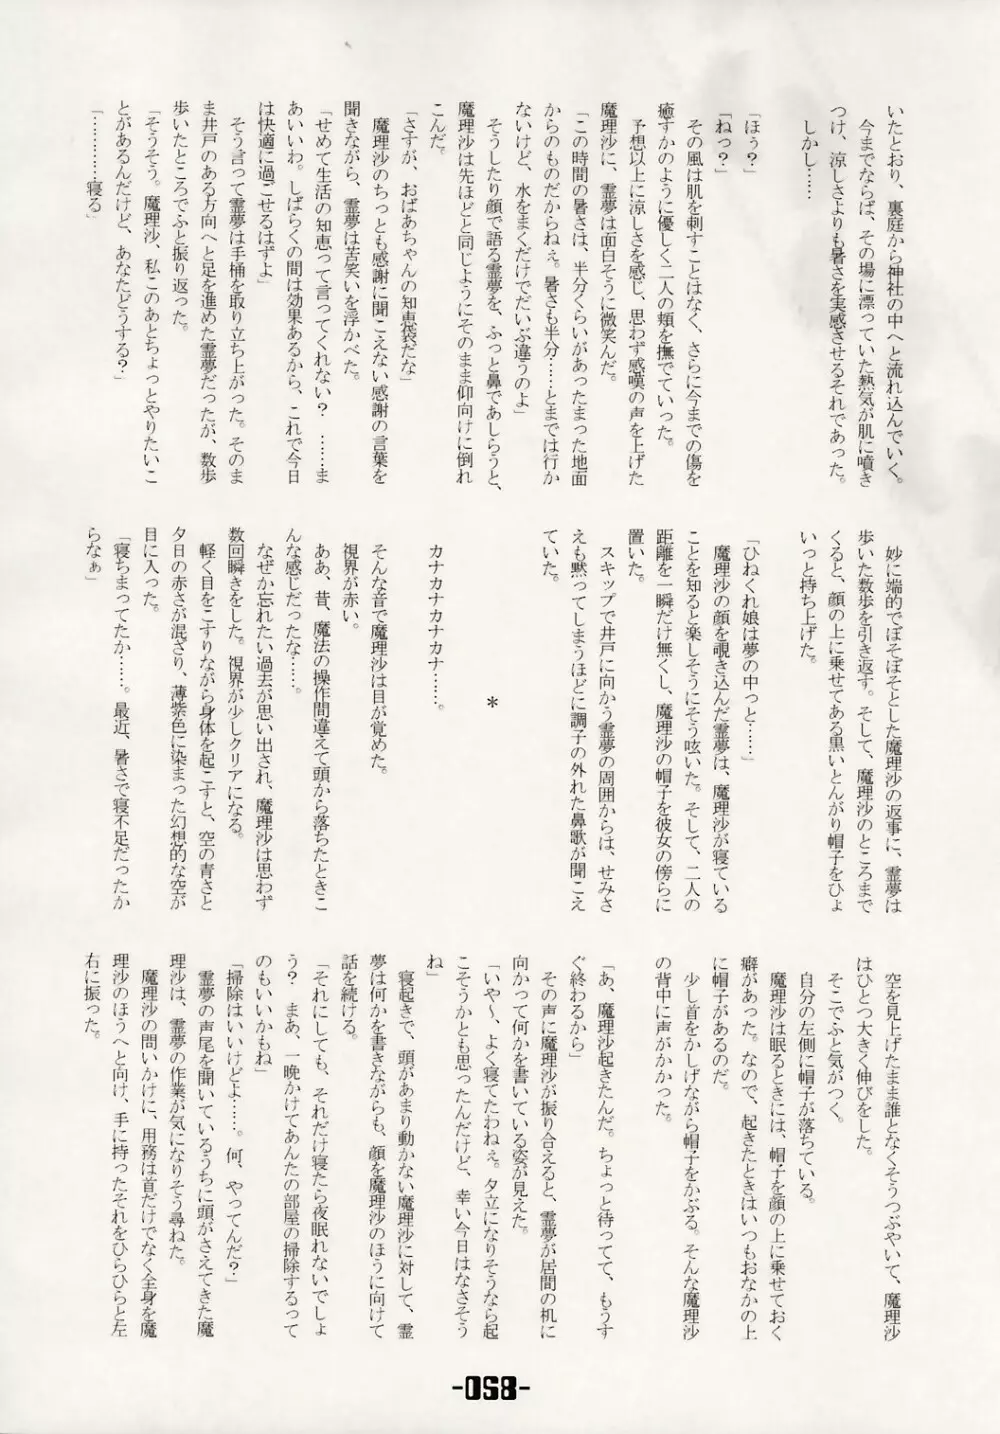 いたとおり、裏庭から神社の中へと流れ込んでいく。
今までならば、その場に漂っていた熱気が肌に噴き
つけ、涼しさよりも暑さを実感させるそれであった。
しかし……
「ほぅ？」
「ねっ？」
その風は肌を刺すことはなく、さらに今までの傷を
癒すかのように優しく二人の頬を撫でていった。
予想以上に涼しさを感じ、思わず感嘆の声を上げた
魔理沙に、霊夢は面白そうに微笑んだ。
「この時間の暑さは、半分くらいがあったまった地面
からのものだからねぇ。暑さも半分……とまでは行か
ないけど、水をまくだけでだいぶ違うのよ」
そうしたり顔で語る霊夢を、ふっと鼻であしらうと、
魔理沙は先ほどと同じようにそのまま仰向けに倒れ
こんだ。
「さすが、おばあちゃんの知恵袋だな」
魔理沙のちっとも感謝に聞こえない感謝の言葉を
聞きながら、霊夢は苦笑いを浮かべた。
「せめて生活の知恵って言ってくれない？　……ま
あいいわ。しばらくの間は効果あるから、これで今日
は快適に過ごせるはずよ」
そう言って霊夢は手桶を取り立ち上がった。そのま
ま井戸のある方向へと足を進めた霊夢だったが、数歩
歩いたところでふと振り返った。
「そうそう。魔理沙、私このあとちょっとやりたいこ
とがあるんだけど、あなたどうする？」
「…………寝る」
妙に端的でぼそぼそとした魔理沙の返事に、霊夢は
歩いた数歩を引き返す。そして、魔理沙のところまで
くると、顔の上に乗せてある黒いとんがり帽子をひょ
いっと持ち上げた。
「ひねくれ娘は夢の中っと……」
魔理沙の顔を覗き込んだ霊夢は、魔理沙が寝ている
ことを知ると楽しそうにそう呟いた。そして、二人の
距離を一瞬だけ無くし、魔理沙の帽子を彼女の傍らに
置いた。
スキップで井戸に向かう霊夢の周囲からは、せみさ
えも黙ってしまうほどに調子の外れた鼻歌が聞こえ
ていた。
＊
カナカナカナカナ……。
そんな音で魔理沙は目が覚めた。
視界が赤い。
ああ、昔、魔法の操作間違えて頭から落ちたときこ
んな感じだったな……。
なぜか忘れたい過去が思い出され、魔理沙は思わず
数回瞬きをした。視界が少しクリアになる。
軽く目をこすりながら身体を起こすと、空の青さと
夕日の赤さが混ざり、薄紫色に染まった幻想的な空が
目に入った。
「寝ちまってたか……。最近、暑さで寝不足だったか
らなぁ」
空を見上げたまま誰となくそうつぶやいて、魔理沙
はひとつ大きく伸びをした。
そこでふと気がつく。
自分の左側に帽子が落ちている。
魔理沙は眠るときには、帽子を顔の上に乗せておく
癖があった。なので、起きたときはいつもおなかの上
に帽子があるのだ。
少し首をかしげながら帽子をかぶる。そんな魔理沙
の背中に声がかかった。
「あ、魔理沙起きたんだ。ちょっと待ってて、もうす
ぐ終わるから」
その声に魔理沙が振り合えると、霊夢が居間の机に
向かって何かを書いている姿が見えた。
「いや～、よく寝てたわねぇ。夕立になりそうなら起
こそうかとも思ったんだけど、幸い今日はなさそう
ね」
寝起きで、頭があまり動かない魔理沙に対して、霊
夢は何かを書きながらも、顔を魔理沙のほうに向けて
話を続ける。
「それにしても、それだけ寝たら夜眠れないでしょ
う？　まあ、一晩かけてあんたの部屋の掃除するって
のもいいかもね」
「掃除はいいけどよ……。何、やってんだ？」
霊夢の声尾を聞いているうちに頭がさえてきた魔
理沙は、霊夢の作業が気になりそう尋ねた。
魔理沙の問いかけに、用務は首だけでなく全身を魔
理沙のほうへと向け、手に持ったそれをひらひらと左
右に振った。
-058-